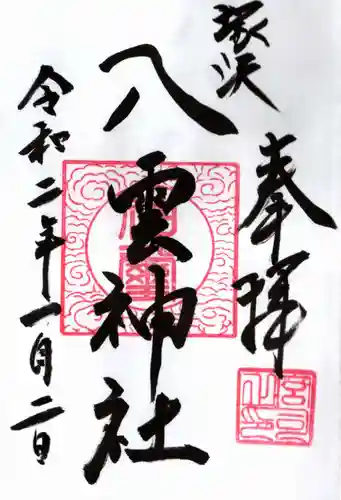 塚沢
奉拝
八雲神社
令和二年一月二日